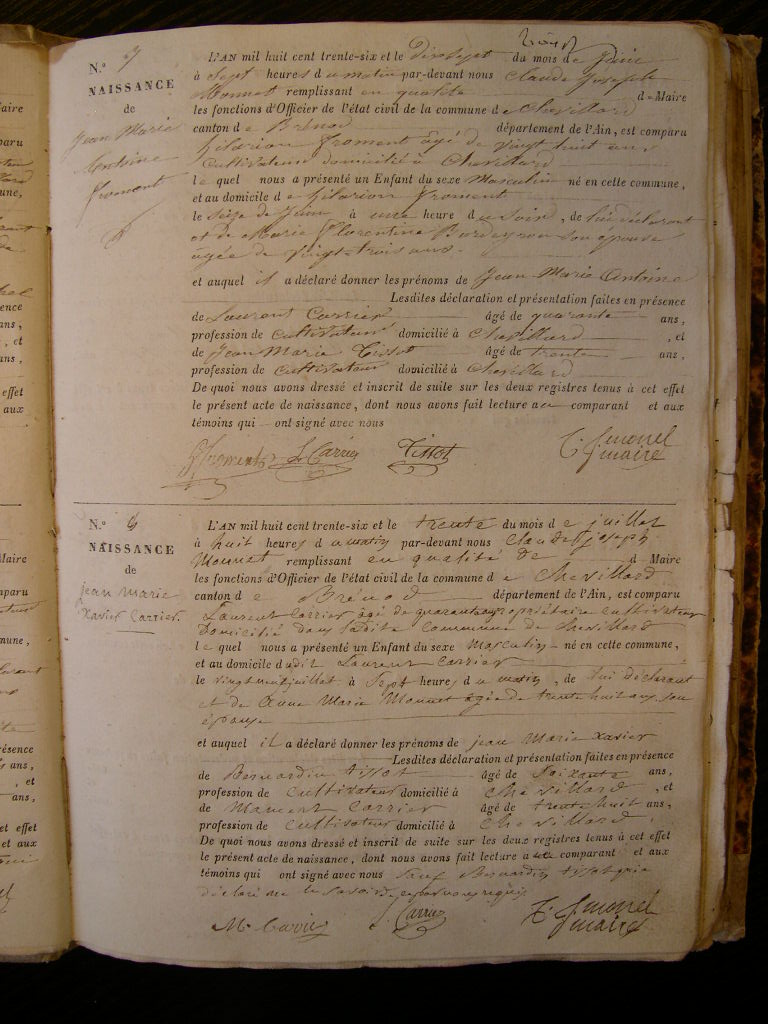 N.º 7
NAISSANCE
de
Jean Marie
Antoine
Froment
L'AN mil huit cent trente-six et le Dixsept du mois de Juin
à Sept heures du matin par-devant nous Claude Joseph
Monnet remplissant en qualité d Maire
les fonctions d'Officier de l'état civil de la commune de Chevillard
canton de Brénod département de l'Ain, est comparu
hilarion Froment âgé de vingt huit ans
Cultivateur domicilié à Chevillard
lequel nous a présenté un Enfant du sexe Masculin né en cette commune,
et au domicile de hilarion Froment
le Seize de Juin à une heure du Soir, de lui déclarant
et de Marie Florentine son épouse
agée de vingt-trois ans.
et auquel il a déclaré donner les prénoms de Jean Marie Antoine
Lesdites déclaration et présentation faites en présence
de Laurent Carrier âgé de quarante ans,
profession de Cultivateur domicilié à Chevillard, et
de Jean Marie Tissot âgé de trente ans,
profession de Cultivateur domicilié à Chevillard
De quoi nous avons dressé et inscrit de suite sur les deux registres tenus à cet effet
le présent acte de naissance, dont nous avons fait lecture au comparant et aux
témoins qui ont signé avec nous
Froment L. Carrier Tissot C. J. monet
maire
N.º 9
NAISSANCE
de
jean marie
Xavier Carrier
L'AN mil huit cent trente-six et le trente du mois de juillet
à huit heures du matin par-devant nous Claude joseph
Monnet remplissant en qualité de d Maire
les fonctions d'Officier de l'état civil de la commune de Chevillard
canton de Brénod département de l'Ain, est comparu
Laurent Carrier âgé de quarante ans propriétaire Cultivateur
Domicilié dans ladite Commune de Chevillard
lequel nous a présenté un Enfant du sexe Masculin né en cette commune,
et au domicile dudit Laurent Carrier
le vingt neuf juillet à Sept heures du matin, de lui déclarant
et de Anne Marie Monnet âgée de trente huit ans son
épouse
et auquel il a déclaré donner les prénoms de jean Marie Xavier
Lesdites déclaration et présentation faites en présence
de Bernardin tissot âgé de Soixante ans,
profession de Cultivateur domicilié à Chevillard, et
de Mancent Carrier âgé de trente huit ans,
profession de Cultivateur domicilié à Chevillard.
De quoi nous avons dressé et inscrit de suite sur les deux registres tenus à cet effet
le présent acte de naissance, dont nous avons fait lecture au comparant et aux
témoins qui ont signé avec nous Sauf Bernardin tissot qui a
déclaré ne le savoir de ce par nous requis
M. Carrier L. Carrier C. J. monet
maire